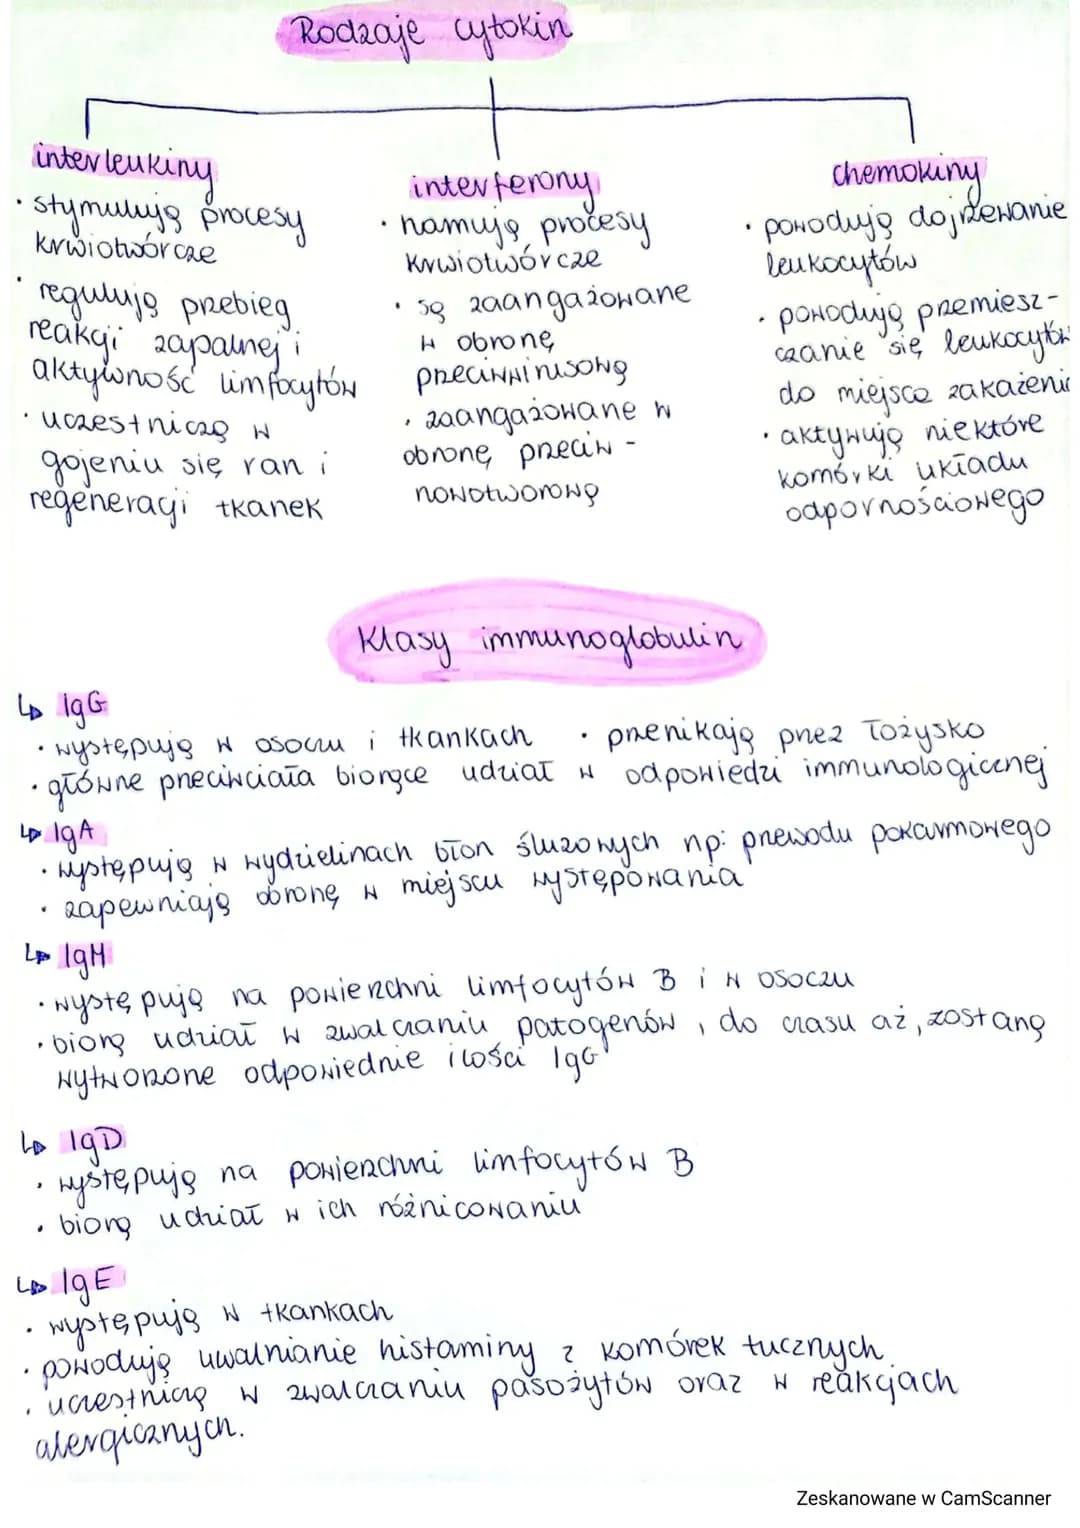 Rodzaje cytokin
interleukiny
· stymulują procesy
krwiotwórcze
· regulują przebieg
reakcji zapalnej i
aktywność limfocytów
· uczestniczą w
gojeniu się ran i
regeneracji tkanek
interferony
· hamują procesy
krwiotwórcze
· są zaangażowane
w obronę
przeciwwirusową
· zaangażowane w
obronę przeciw-
nowotworową
chemokiny
· powodują dojrzewanie
leukocytów
· powodują przemiesz-
czanie się leukocytów
do miejsca zakażenia
· aktywują niektóre
komórki układu
odpornościowego
Klasy immunoglobulin
↳ IgG
· występują w osoczu i tkankach · przenikają przez łożysko
· główne przeciwciała biorące udział w odpowiedzi immunologicznej
↳ IgA
· występują w wydzielinach błon śluzowych np: przewodu pokarmowego
· zapewniają obronę w miejscu występowania
↳ IgM
· występują na powierzchni limfocytów B i w osoczu
· biorą udział w zwalczaniu patogenów, do czasu aż, zostaną
wytworzone odpowiednie ilości IgG
↳ IgD
· występują na powierzchni limfocytów B
· biorą udział w ich różnicowaniu
↳ IgE
· występują w tkankach
· powodują uwalnianie histaminy z komórek tucznych
· uczestniczą w zwalczaniu pasożytów oraz w reakcjach
alergicznych.
Zeskanowane w CamScanner